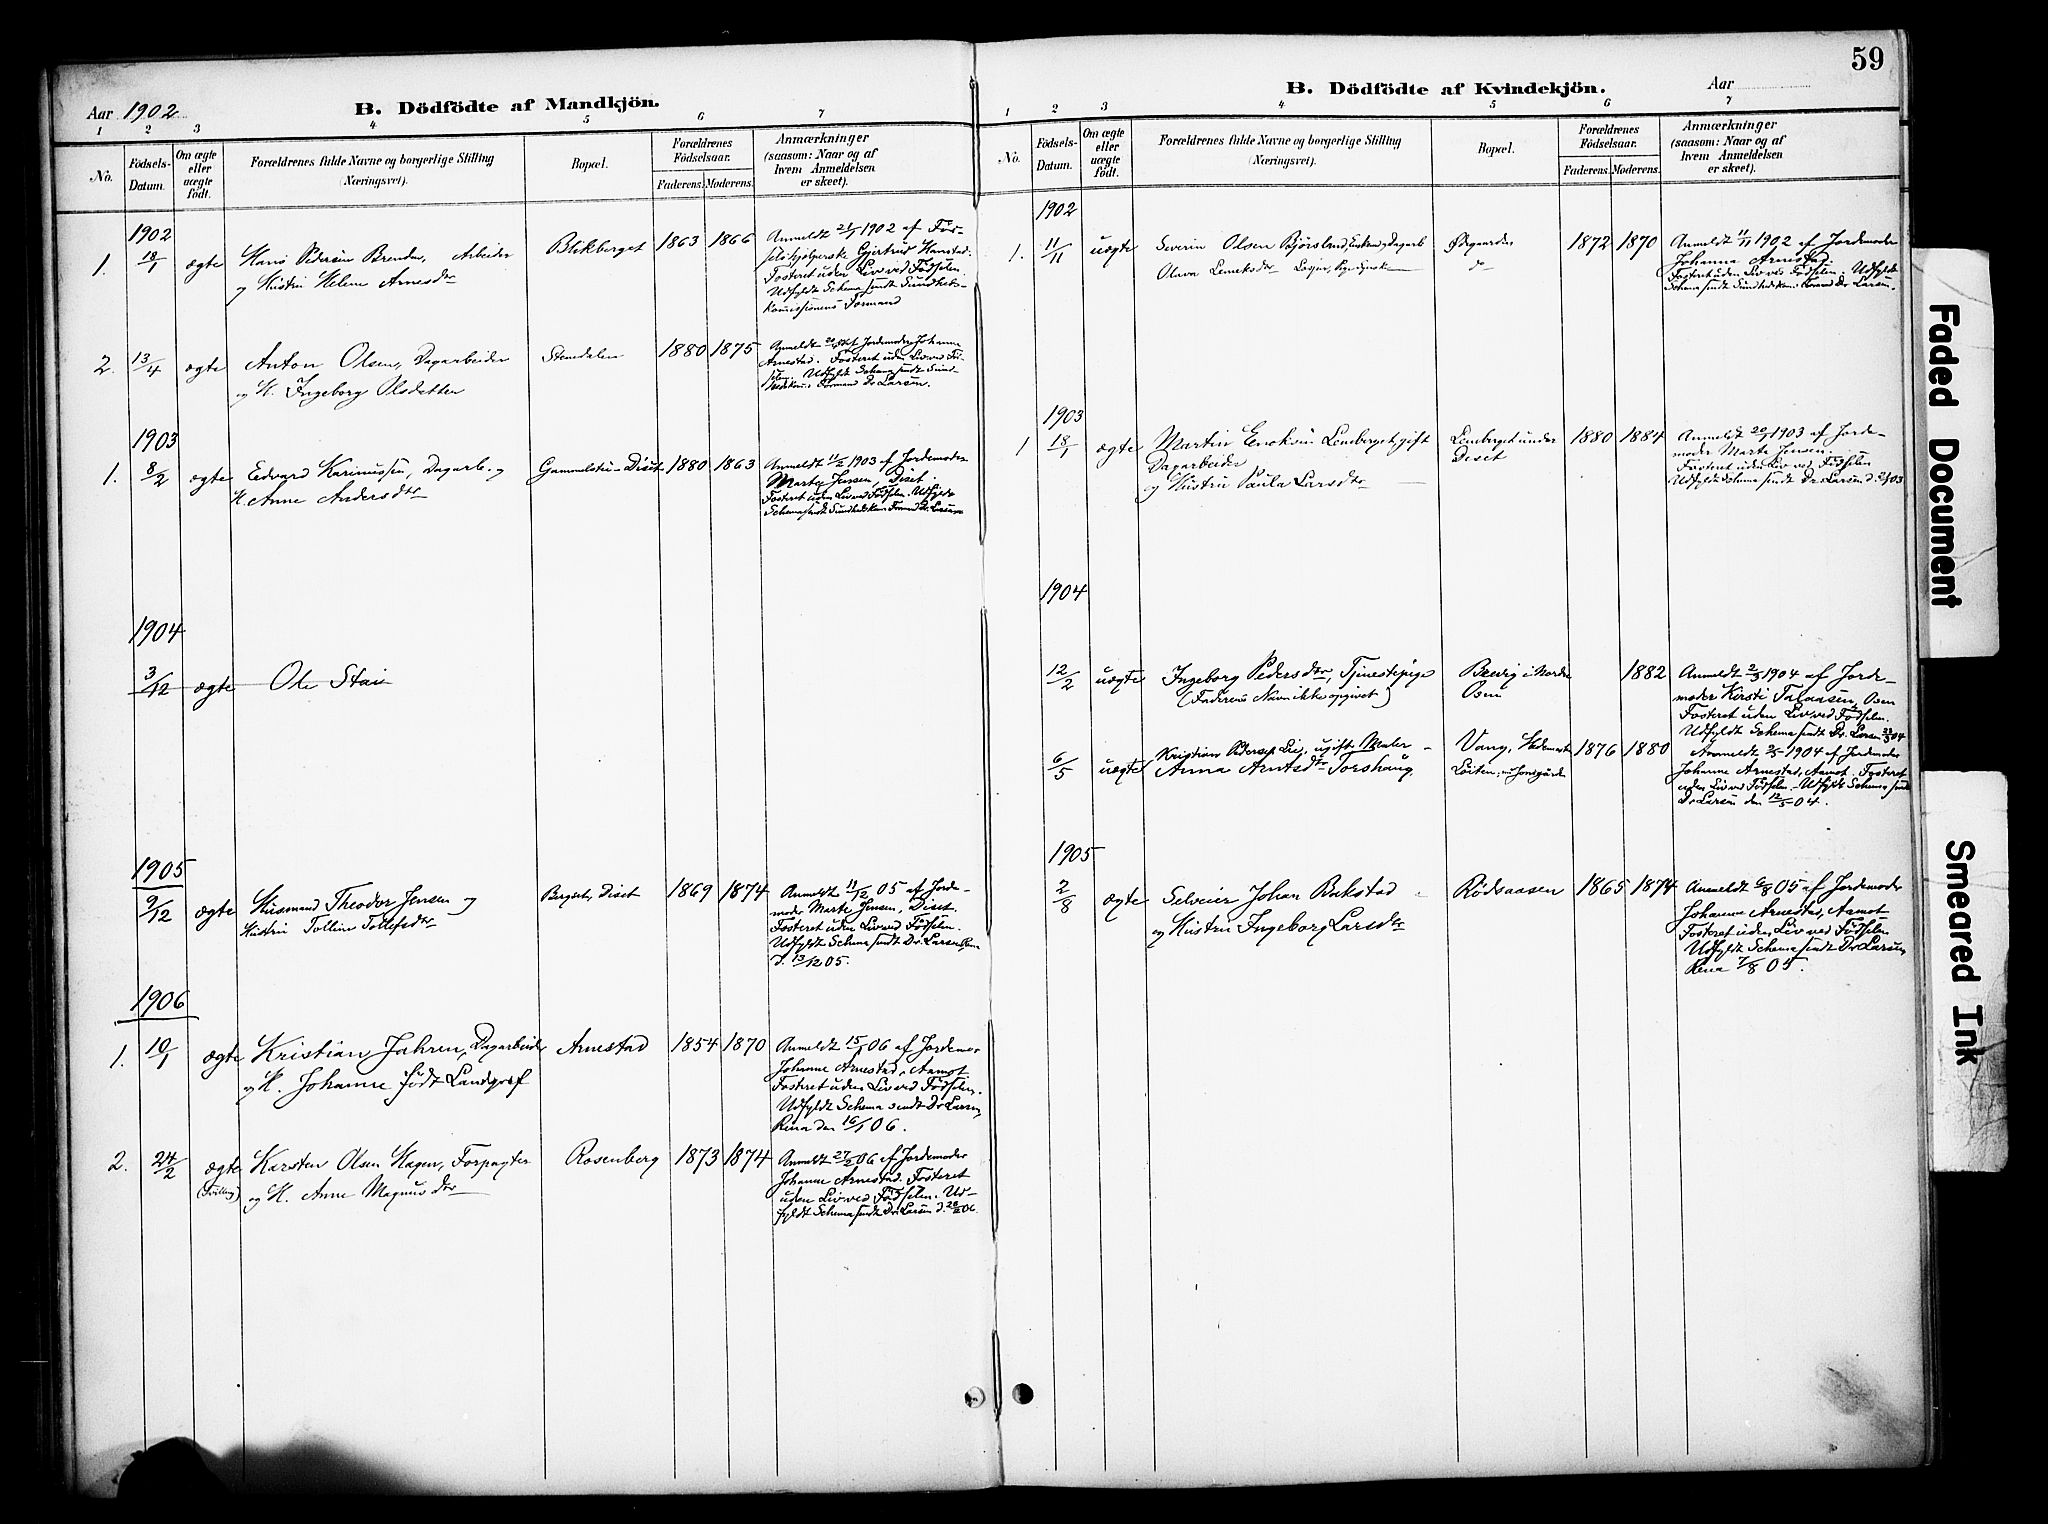 59
Aar 1902
B. Dödfödte af Mandkjön.
1 2 3 4 5 6 7
No.
Födsels-Datum.
Om ægte eller uægte födt.
Forældrenes fulde Navne og borgerlige Stilling
(Næringsvei).
Bopæl.
Forældrenes Födselsaar.
Faderens. Moderens.
Anmærkninger
(saasom: Naar og af
hvem Anmeldelsen
er skeet).
1902
1. 18/1 ægte Hans Pedersen Brenden, Arbeider
og Hustru Helene Arnesdtr
Blikberget 1863 1866
Anmeldt 21/1 1902 af Fød-
selshjælperske Gjertrud
Fosteret uden Liv ved Fødselen.
Udfyldt Schema sendt Sundheds-
kommissionens Formand
2. 13/4 ægte Anton Olsen, Dagarbeider
og H. Ingeborg Olsdatter
Stendalen 1880 1875
Anmeldt af Jordemoder Johanna
Arnestad. Fosteret uden Liv ved Fød-
selen. Udfyldt Schema sendt Sund-
hedskom: Formand Dr. Larsen.
1903
1. 8/2 ægte Edvard Karinussen, Dagarb. og
H. Anne Andersdtr
Gammelstu-Diset 1880 1863
Anmeldt 11/2 1903 af Jordemoder
Marte Jensen, Diset.
Fosteret uden Liv ved Fødselen. Udfyldt
Schema sendt Sundhedskom Formand Dr. Larsen
1904
3/12 ægte Ole Stai
1905
9/12 ægte Husmand Theodor Jensen og
Hustru Tolline Tollefsdtr
Berget, Diset 1869 1874
Anmeldt 11/12 05 af Jorde-
moder Marte Jensen, Diset.
Fosteret uden Liv ved Fødselen.
Udfyldt Schema sendt Dr. Larsen Rena
d. 13/12 05.
1906
1. 10/1 ægte Kristian Jahren, Dagarbeider
og H. Johanne født Landgraf
Arnestad 1854 1870
Anmeldt 15/1 06 af Jordemor
Johanne Arnestad, Aamot.
Fosteret uden Liv ved Fødselen.
Udfyldt Schema sendt Dr. Larsen,
Rena den 16/1 06.
2. 24/2 ægte (Tvilling) Karsten Olsen Hagen, Forpagter
og H. Anne Magnusdtr
Rosenberg 1873 1874
Anmeldt 27/2 06 af Jordemoder
Johanne Arnestad. Fosteret
uden Liv ved Fødselen. Ud-
fyldt Schema sendt Dr. Larsen d. 28/2 06.
B. Dödfödte af Kvindekjön.
Aar
1 2 3 4 5 6 7
No.
Födsels-Datum.
Om ægte eller uægte födt.
Forældrenes fulde Navne og borgerlige Stilling
(Næringsvei).
Bopæl.
Forældrenes Födselsaar.
Faderens. Moderens.
Anmærkninger
(saasom: Naar og af
hvem Anmeldelsen
er skeet).
1902
1. 11/11 uægte Severin Olsen Bjørsland, Enkem. Dagarb
Olava
Ødegaarden
do
1872 1870
Anmeldt 11/11 1902 af Jordemoder
Johanna Arnestad.
Fosteret uden Liv ved Fødselen. Udfyldt
Schema sendt Sundhedskom: Formand Dr. Larsen.
1903
1 18/1 ægte Martin Eriksen Lemberget, gift
Dagarbeider
og Hustru Paula Larsdtr
Lemberget under
Diset
1880 1884
Anmeldt 20/1 1903 af Jorde-
moder Marte Jensen.
Fosteret uden Liv ved Fødselen
Udfyldt Schema sendt Dr. Larsen d. 21/1 03
1904
12/2 uægte Ingeborg Pedersdtr, Tjenestepige
(Faderens Navn ikke opgivet)
i Nordre
Osen
1882
Anmeldt 2/3 1904 af Jorde-
moder Kirsti Taraasen, Osen
Fosteret uden Liv ved Fødselen.
Udfyldt Schema sendt Dr. Larsen 04
6/5 uægte Kristian Pedersen Lie, ugift Maler
Anna Arntsdtr Torshaug
Vang, Hedemarken
Løiten,
1876 1880
Anmeldt 1904 af Jordemoder
Johanne Arnestad, Aamot. Fosteret
uden Liv ved Fødselen. Udfyldt Schema sendt
Dr. Larsen den 12/5 04.
1905
2/8 ægte Selveier Johan Bakstad
og Hustru Ingeborg Larsdtr
Rødsaasen 1865 1874
Anmeldt 6/8 05 af Jordemoder
Johanne Arnestad, Aamot
Fosteret uden Liv ved Fødselen
Udfyldt Schema sendt Dr. Larsen,
Rena 7/8 05.
Faded Document
Smeared Ink